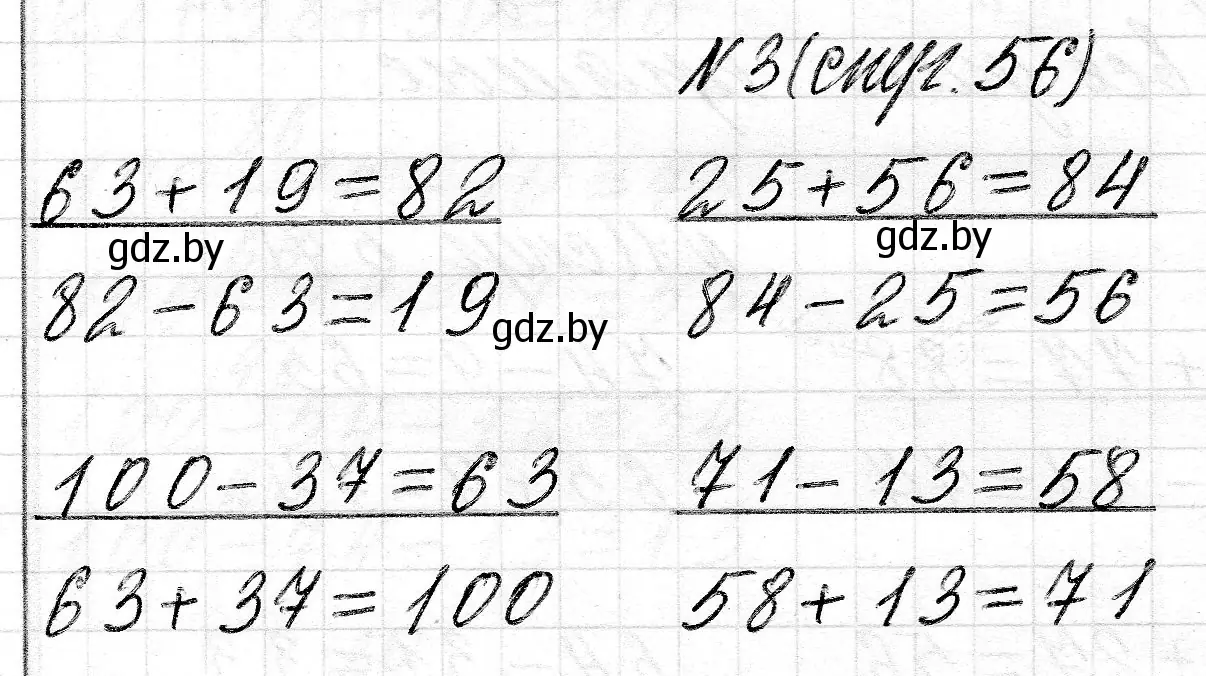 N 3 (стр. 56)
63 + 19 = 82
25 + 56 = 84
gdz.by
gdz.by
82 - 63 = 19
84 - 25 = 56
gdz.by
100 - 37 = 63
71 - 13 = 58
63 + 37 = 100
58 + 13 = 71